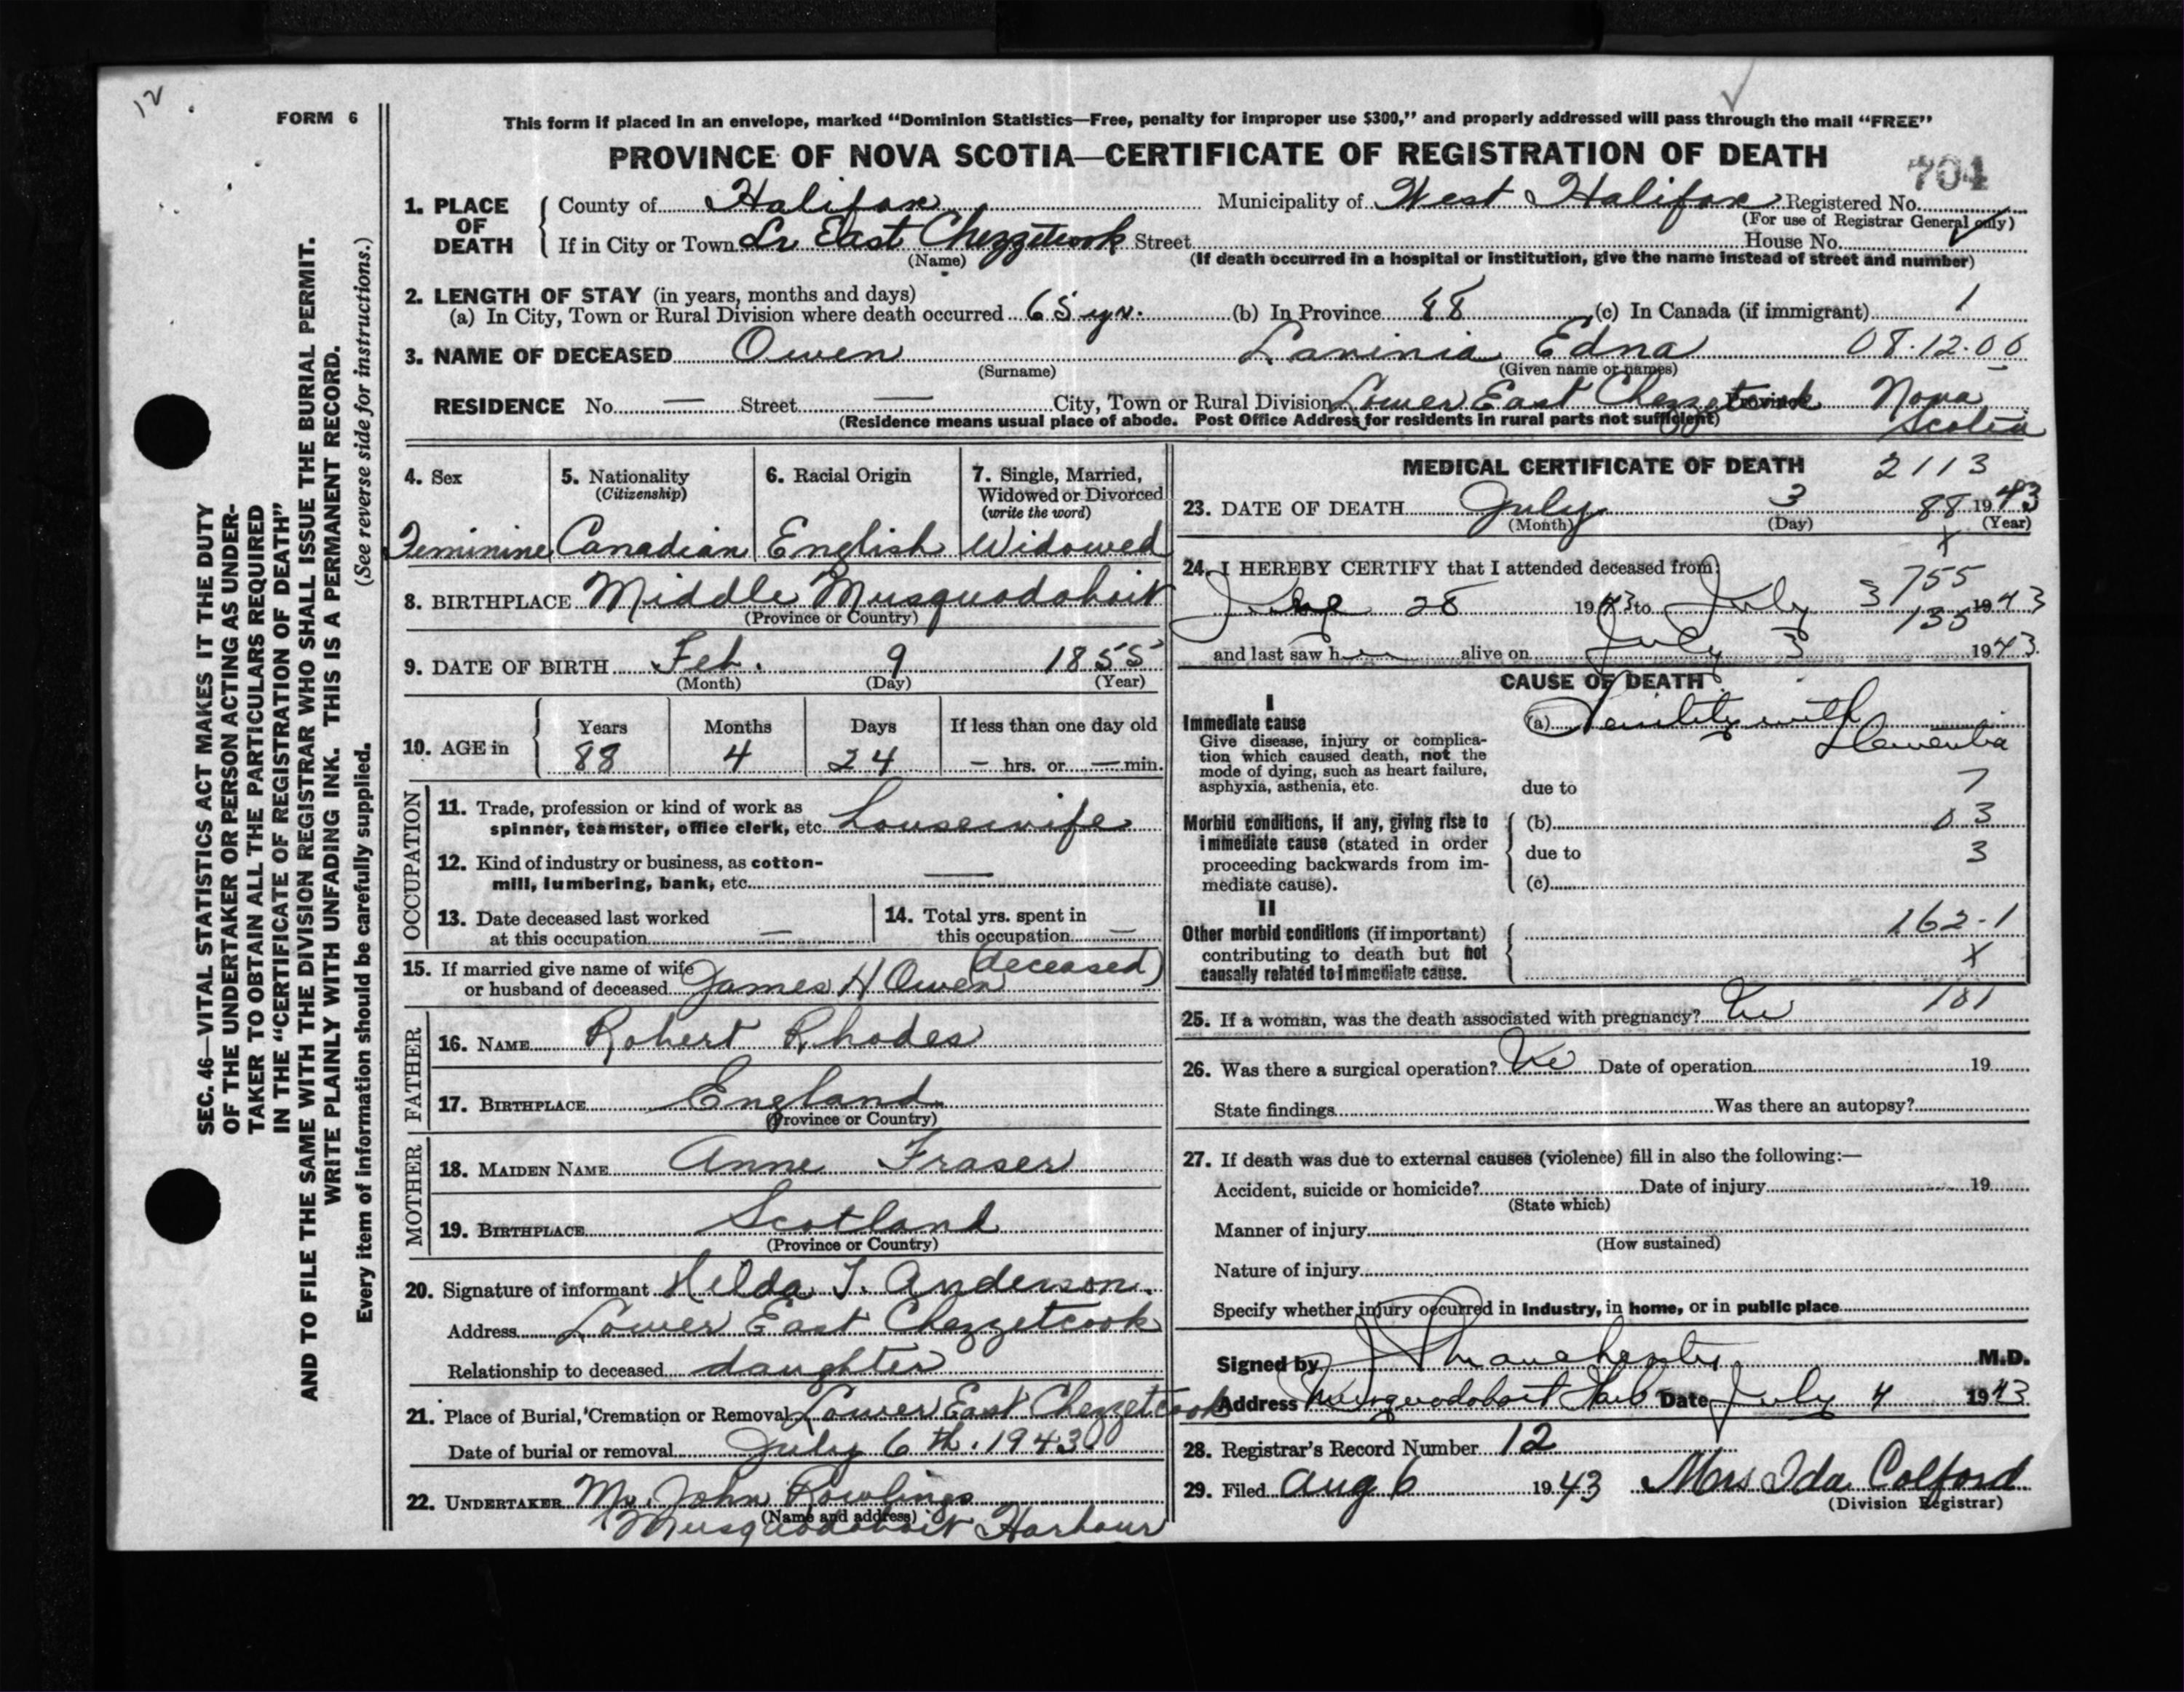 12
FORM 6
This form if placed in an envelope, marked "Dominion Statistics—Free, penalty for improper use $300," and properly addressed will pass through the mail "FREE"
PROVINCE OF NOVA SCOTIA—CERTIFICATE OF REGISTRATION OF DEATH
704
1. PLACE OF DEATH County of Halifax Municipality of West Halifax Registered No.
(For use of Registrar General only)
If in City or Town Lr East Chezzetcook Street House No.
(Name) (If death occurred in a hospital or institution, give the name instead of street and number)
2. LENGTH OF STAY (in years, months and days)
(a) In City, Town or Rural Division where death occurred 65 yr. (b) In Province 88 (c) In Canada (if immigrant) 1
3. NAME OF DECEASED Owen Lavinia Edna 08.12.00
(Surname) (Given name or names)
RESIDENCE No. — Street — City, Town or Rural Division Lower East Chezzetcook Province Nova Scotia
(Residence means usual place of abode. Post Office Address for residents in rural parts not sufficient)
4. Sex 5. Nationality 6. Racial Origin 7. Single, Married,
(Citizenship) Widowed or Divorced
(write the word)
Feminine Canadian English Widowed
8. BIRTHPLACE Middle Musquodoboit
(Province or Country)
9. DATE OF BIRTH Feb. 9 1855
(Month) (Day) (Year)
Years Months Days If less than one day old
10. AGE in 88 4 24 — hrs. or — min.
OCCUPATION
11. Trade, profession or kind of work as
spinner, teamster, office clerk, etc. housewife
12. Kind of industry or business, as cotton-
mill, lumbering, bank, etc. —
13. Date deceased last worked
at this occupation —
14. Total yrs. spent in
this occupation —
15. If married give name of wife (deceased)
or husband of deceased James H Owen
FATHER
16. NAME Robert Rhodes
17. BIRTHPLACE England
(Province or Country)
MOTHER
18. MAIDEN NAME Anne Fraser
19. BIRTHPLACE Scotland
(Province or Country)
20. Signature of informant Hilda T. Anderson.
Address Lower East Chezzetcook
Relationship to deceased daughter
21. Place of Burial, Cremation or Removal Lower East Chezzetcook
Date of burial or removal July 6th. 1943
22. UNDERTAKER Mr. John Rowlings
(Name and address)
Musquodoboit Harbour
MEDICAL CERTIFICATE OF DEATH 2113
23. DATE OF DEATH July 3 88 1943
(Month) (Day) (Year)
x
24. I HEREBY CERTIFY that I attended deceased from:
755
June 28 1943 to July 3 1943
135
and last saw her alive on July 3 1943.
CAUSE OF DEATH
I
Immediate cause (a) Senility with
Give disease, injury or complica-
tion which caused death, not the
mode of dying, such as heart failure,
asphyxia, asthenia, etc. due to 7
Morbid conditions, if any, giving rise to (b) 03
immediate cause (stated in order due to 3
proceeding backwards from im-
mediate cause). (c)
II
Other morbid conditions (if important) 162-1
contributing to death but not x
causally related to immediate cause.
101
25. If a woman, was the death associated with pregnancy? No
26. Was there a surgical operation? No Date of operation 19
State findings Was there an autopsy?
27. If death was due to external causes (violence) fill in also the following:—
Accident, suicide or homicide? Date of injury 19
(State which)
Manner of injury
(How sustained)
Nature of injury
Specify whether injury occurred in Industry, in home, or in public place
Signed by M.D.
Address Musquodoboit Harb Date July 4 1943
28. Registrar's Record Number 12
29. Filed Aug 6 1943 Mrs Ida Colford
(Division Registrar)
SEC. 46—VITAL STATISTICS ACT MAKES IT THE DUTY
OF THE UNDERTAKER OR PERSON ACTING AS UNDER-
TAKER TO OBTAIN ALL THE PARTICULARS REQUIRED
IN THE "CERTIFICATE OF REGISTRATION OF DEATH"
AND TO FILE THE SAME WITH THE DIVISION REGISTRAR WHO SHALL ISSUE THE BURIAL PERMIT.
WRITE PLAINLY WITH UNFADING INK. THIS IS A PERMANENT RECORD.
Every item of information should be carefully supplied. (See reverse side for instructions.)